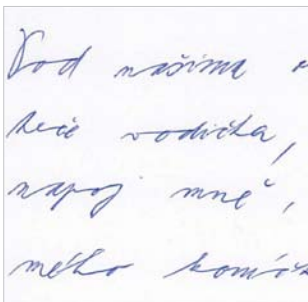 Pod našima
teče vodička,
napoj mně,
mého